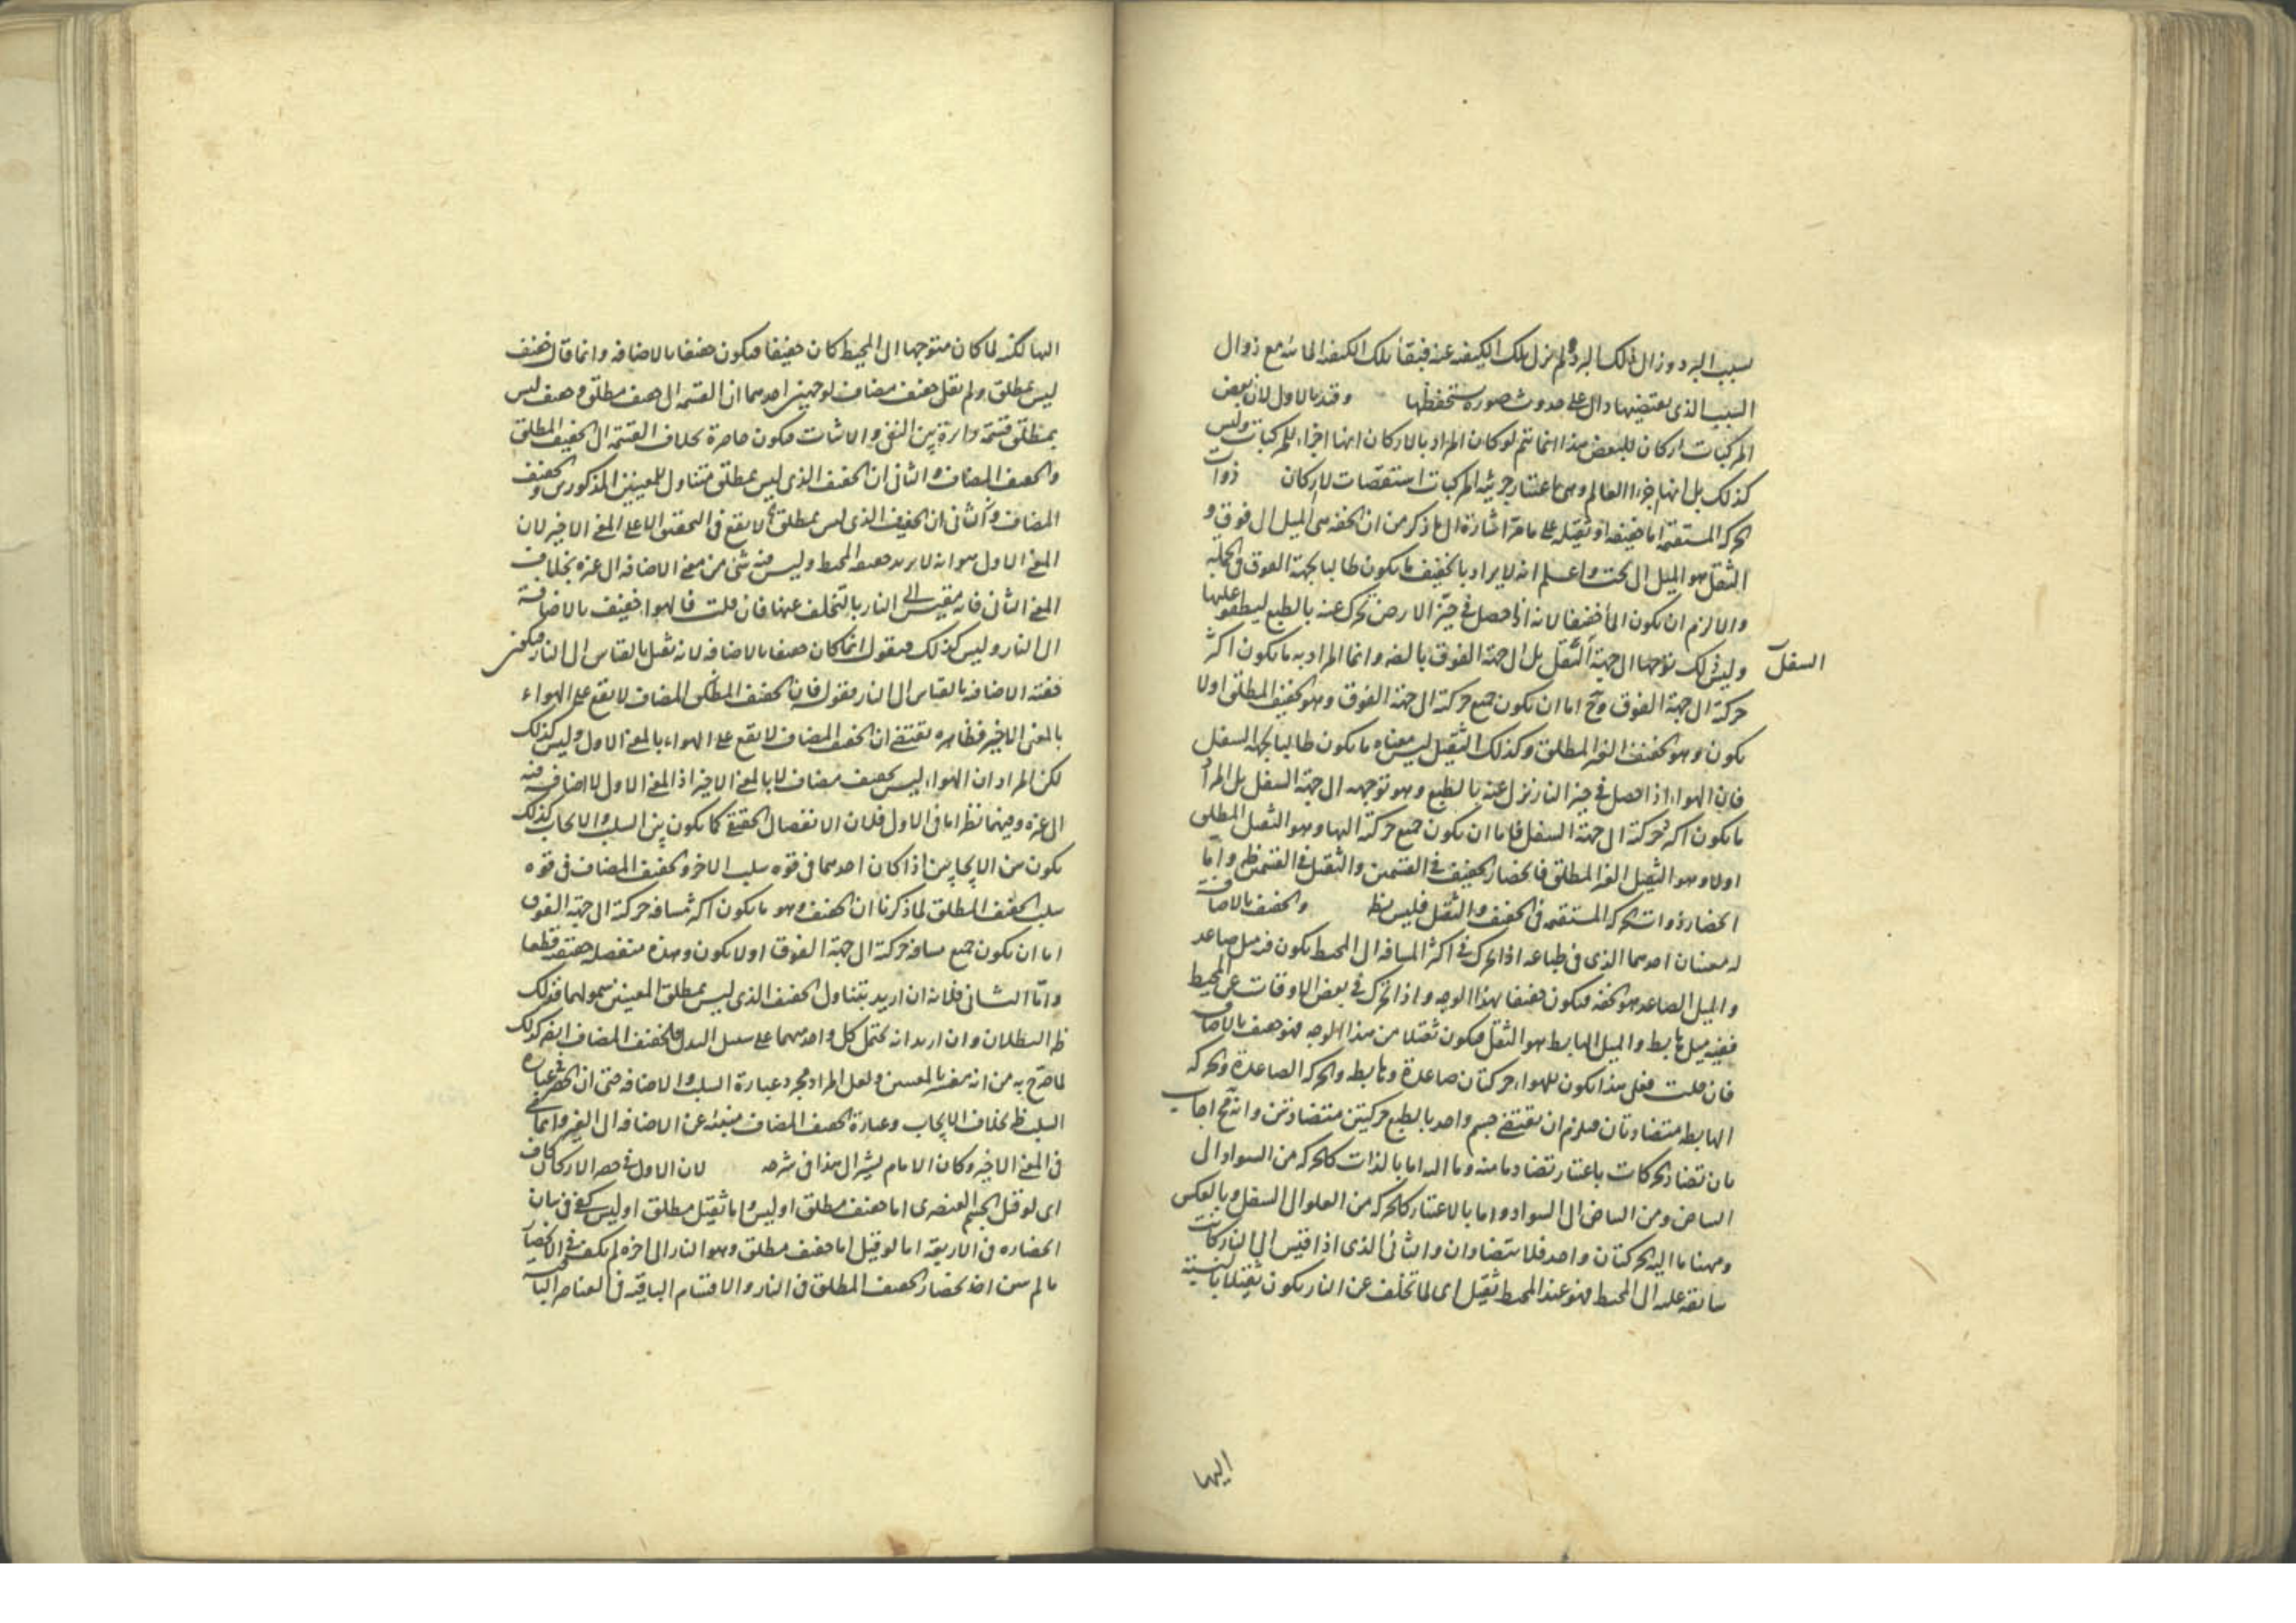 بسبب البرد وزال ذلك البرد ولم يزل تلك الكيفية عنه فبقاء تلك الكيفية المائية مع زوال
السبب الذى يقتضيها دال على حدوث صورة ستحفظها وقيد بالاول لان بعض
المركبات اركان للبعض هذا انما يتم لو كان المراد بالاركان انها اجزاء للمركبات وليس
كذلك بل انها اجزاء العالم وهى باعتبار جزئية المركبات استقصات لا اركان ذوات
الحركة المستقيمة اما خفيفة او ثقيلة على ما مر اشارة الى ما ذكر من ان الخفة هى الميل الى فوق و
الثقل هو الميل الى تحت واعلم انه لا يراد بالخفيف ما يكون طالبا لجهة الفوق فى الجملة
والا لزم ان يكون الماء خفيفا لانه اذا حصل فى حيز الارض تحرك عنه بالطبع ليطفو عليها
وليس ذلك توجها الى جهة الثقل بل الى جهة الفوق بالضرورة وانما المراد به ما يكون اكثر
السفل
حركته الى جهة الفوق وح اما ان يكون جميع حركته الى جهة الفوق وهو الخفيف المطلق اولا
يكون وهو الخفيف الغير المطلق وكذلك الثقيل ليس معناه ما يكون طالبا لجهة السفل
فان الهواء اذا حصل فى حيز النار نزل عنه بالطبع وهو توجهه الى جهة السفل بل المراد
ما يكون اكثر حركته الى جهة السفل فاما ان يكون جميع حركته اليها وهو الثقيل المطلق
اولا وهو الثقيل الغير المطلق فانحصار الخفيف فى القسمين والثقيل فى القسمين ظ واما
انحصار ذوات الحركة المستقيمة فى الخفيف والثقيل فليس بظ والخفيف بالاضافة
له معنيان احدهما الذى فى طباعه اذا تحرك فى اكثر المسافة الى المحيط يكون فيه ميل صاعد
والميل الصاعد هو الخفة فيكون خفيفا بهذا الوجه واذا تحرك فى بعض الاوقات عن المحيط
ففيه ميل هابط والميل الهابط هو الثقل فيكون ثقيلا من هذا الوجه فهو خفيف بالاضافة
فان قلت فعلى هذا يكون للهواء حركتان صاعدة وهابطة والحركة الصاعدة والحركة
الهابطة متضادتان فيلزم ان يقتضى جسم واحد بالطبع حركتين متضادتين وانه مح اجاب
بان تضاد الحركات باعتبار تضاد ما منه وما اليه اما بالذات كالحركة من السواد الى
البياض ومن البياض الى السواد واما بالاعتبار كالحركة من العلو الى السفل وبالعكس
وههنا ما اليه الحركتان واحد فلا يتضادان والثانى الذى اذا قيس الى النار كانت
سابقة عليه الى المحيط فهو عند المحيط ثقيل اى لما تخلف عن النار يكون ثقيلا بالنسبة
اليها
اليها لكنه لما كان متوجها الى المحيط كان خفيفا فيكون خفيفا بالاضافة وانما قال خفيف
ليس بمطلق ولم يقل خفيف مضاف لوجهين احدهما ان القسمة الى خفيف مطلق وخفيف ليس
بمطلق قسمة دائرة بين النفى والاثبات فيكون حاصرة بخلاف القسمة الى الخفيف المطلق
والخفيف المضاف والثانى ان الخفيف الذى ليس بمطلق متناول للمعنيين المذكورين والخفيف
المضاف والثانى ان الخفيف الذى ليس بمطلق لا يقع فى التحقيق الا على المعنى الاخير لان
المعنى الاول هو انه لا يريد حقيقة المحيط وليس فيه شئ من معنى الاضافة الى غيره بخلاف
المعنى الثانى فانه مقيس الى النار بالتخلف عنها فان قلت فالهواء خفيف بالاضافة
الى النار وليس كذلك فنقول انما كان خفيفا بالاضافة لانه ثقيل بالقياس الى النار فيكون
خفته الاضافية بالقياس الى النار فقوله فان الخفيف المضاف لا يقع على الهواء
بالمعنى الاخير فظاهره يقتضى ان الخفيف المضاف لا يقع على الهواء بالمعنى الاول وليس كذلك
لكن المراد ان الهواء ليس بخفيف مضاف الا بالمعنى الاخير اذ المعنى الاول لا اضافة فيه
الى غيره وفيهما نظر اما فى الاول فلان الانفصال الحقيقى كما يكون بين السلب والايجاب كذلك
يكون من الايجابين اذا كان احدهما فى قوة سلب الاخر والخفيف المضاف فى قوة
سلب الخفيف المطلق لما ذكرنا ان الخفيف وهو ما يكون اكثر مسافة حركته الى جهة الفوق
اما ان يكون جميع مسافة حركته الى جهة الفوق اولا يكون وهذه منفصلة حقيقة قطعا
واما الثانى فلانه ان اريد بتناول الخفيف الذى ليس بمطلق المعنيين شمولهما فذلك
ظ البطلان وان اريد انه يحتمل كل واحد منهما على سبيل البدل فالخفيف المضاف ايضا كذلك
لما صرح به من انه يفسر بالمعنيين ولعل المراد مجرد عبارة السلب والاضافة حتى ان الحصر فى عبارة
السلب ظ بخلاف الايجاب وعبارة الخفيف المضاف منبئة عن الاضافة الى الغير وانما هى
فى المعنى الاخير وكان الامام يشير الى هذا فى شرحه لان الاول فى حصر الاركان كاف
اى لو قيل الجسم العنصرى اما خفيف مطلق او ليس واما ثقيل مطلق او ليس كفى فى بيان
انحصاره فى الاربعة اما لو قيل اما خفيف مطلق وهو النار الى اخره لم يكف فى الانحصار
ما لم يبين انحصار الخفيف المطلق فى النار والاقسام الباقية فى العناصر الباقية